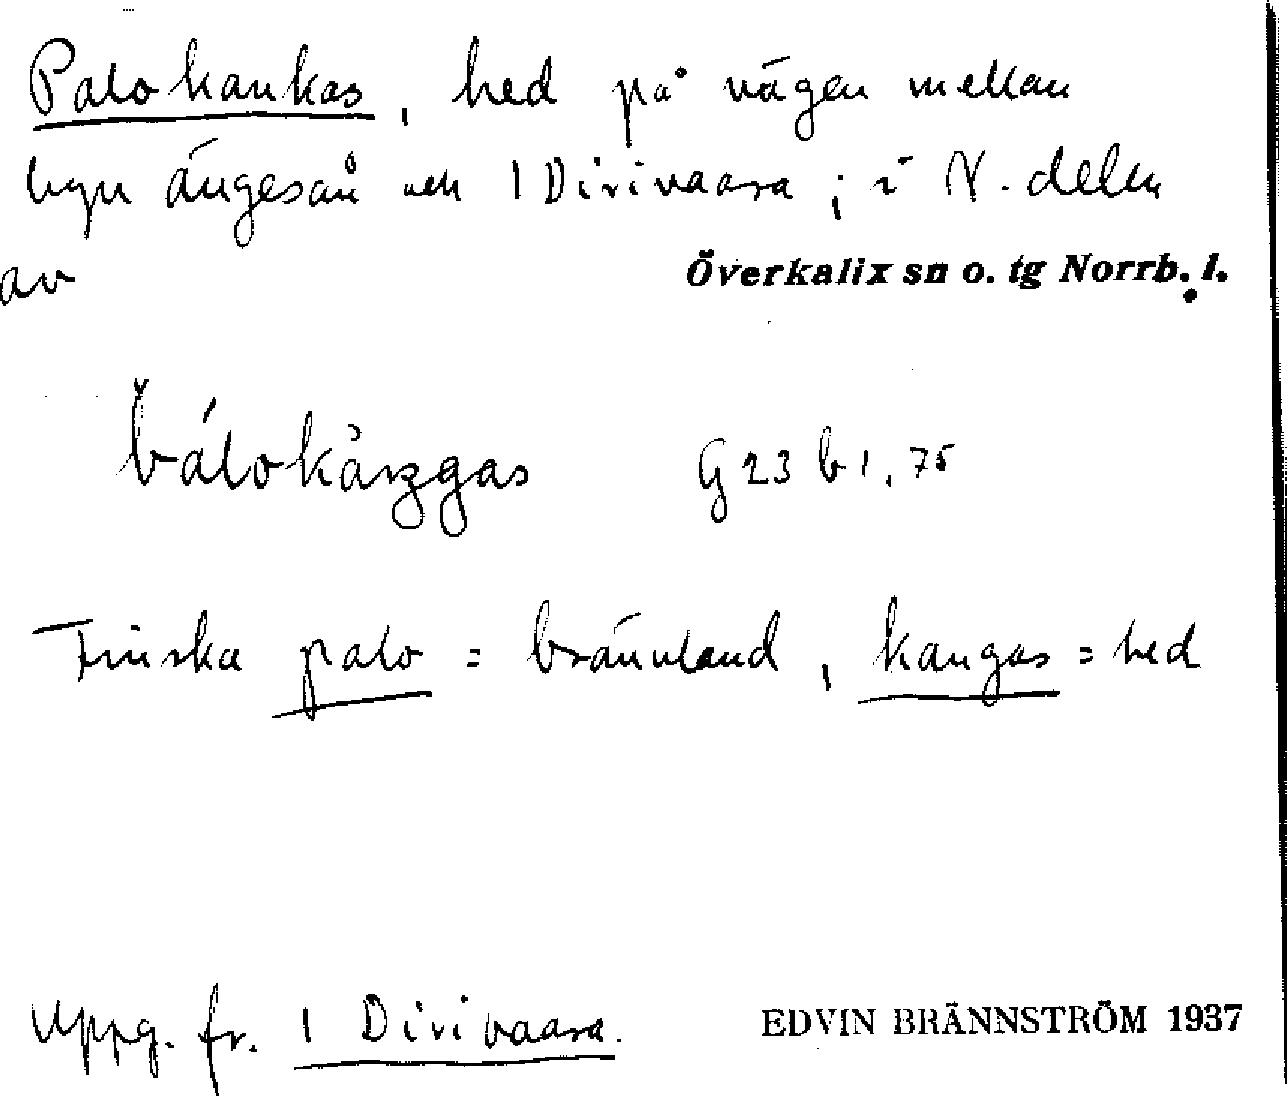 Palokankas, hed på vägen mellan
byn Ängesån och 1 Dirivaara ; i N. delen
av
Överkalix sn o. tg Norrb. l.
G 23 b 1, 75
Finska palo = bränland, kangas = hed
Uppg. fr. 1 Dirivaara.
EDVIN BRÄNNSTRÖM 1937